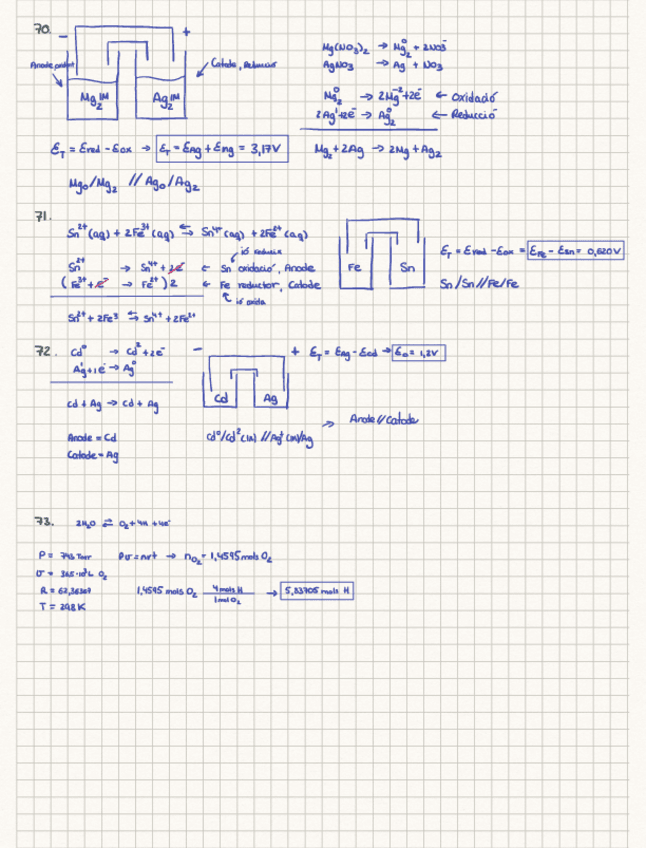 70.
− +
Anode
Catode, Reducció
Mg₂ 1M
Ag₂ 1M
Mg(NO₃)₂ → Mg₂⁰ + 2NO₃⁻
AgNO₃ → Ag + NO₃
Mg₂⁰ → 2Mg⁺² + 2e⁻ ← Oxidació
2Ag⁺ + 2e⁻ → Ag₂⁰ ← Reducció
Mg₂ + 2Ag → 2Mg + Ag₂
ε_T = ε_red − ε_ox → ε_T = ε_Ag + ε_Mg = 3,17V
Mg₀/Mg₂ // Ag₀/Ag₂
71.
Sn²⁺(aq) + 2Fe³⁺(aq) ⇆ Sn⁴⁺(aq) + 2Fe²⁺(aq)
ió reduix
Sn²⁺ → Sn⁴⁺ + 2e⁻ ← Sn oxidació, Anode
(Fe³⁺ + e⁻ → Fe²⁺) 2 ← Fe reductor, Catode
ió oxida
Sn²⁺ + 2Fe³ ⇆ Sn⁴⁺ + 2Fe²⁺
Fe Sn
ε_T = ε_red − ε_ox = ε_Fe − ε_Sn = 0,620V
Sn/Sn//Fe/Fe
72.
Cd⁰ → Cd² + 2e⁻
Ag¹ + 1e⁻ → Ag⁰
Cd + Ag → Cd + Ag
Anode = Cd
Catode = Ag
− +
Cd Ag
ε_T = ε_Ag − ε_Cd → ε₀ = 1,2V
Cd⁰/Cd²(1M)//Ag⁺(1M)/Ag
→ Anode//Catode
73. 2H₂O ⇄ O₂ + 4H + 4e⁻
P = 746 Torr
PV = nrt → n_O₂ = 1,4595 mols O₂
V = 36,5·10³ L O₂
R = 62,36367
T = 298 K
1,4595 mols O₂ 4 mols H / 1 mol O₂ → 5,83705 mols H